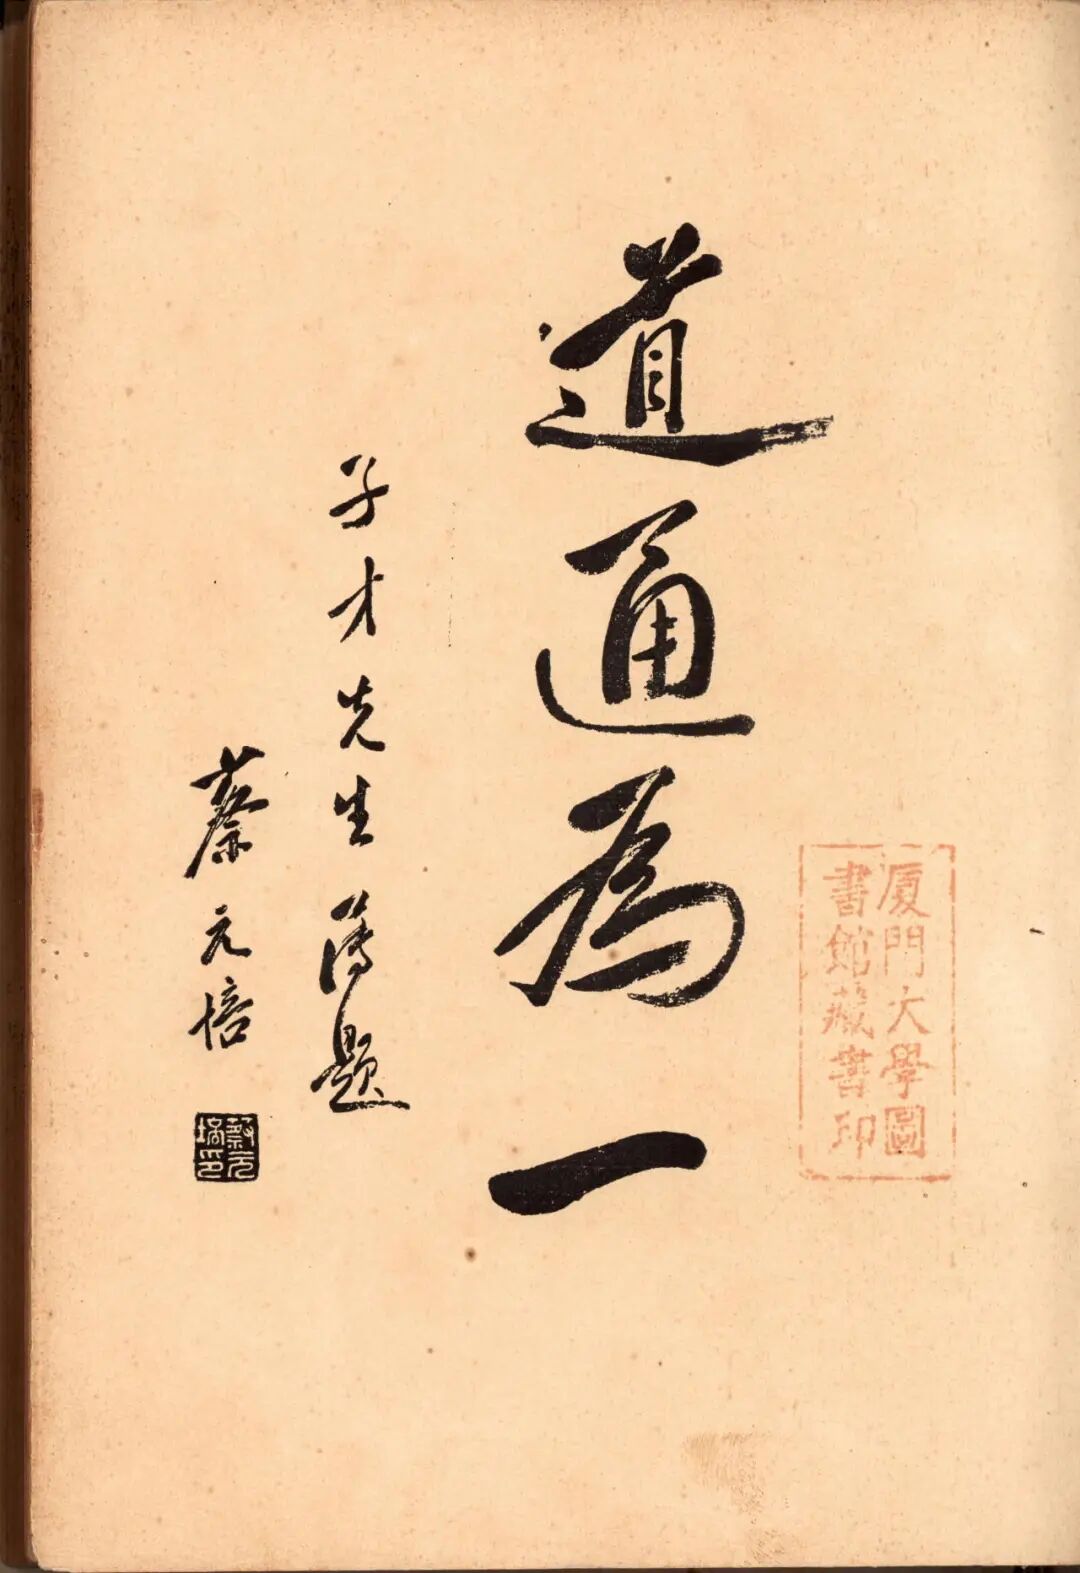 厦門大學圖
書館藏書印
道通為一
子才先生屬題
蔡元培
蔡元
培印